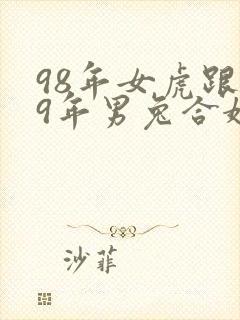 98年女虎跟
9年男兔合
沙菲